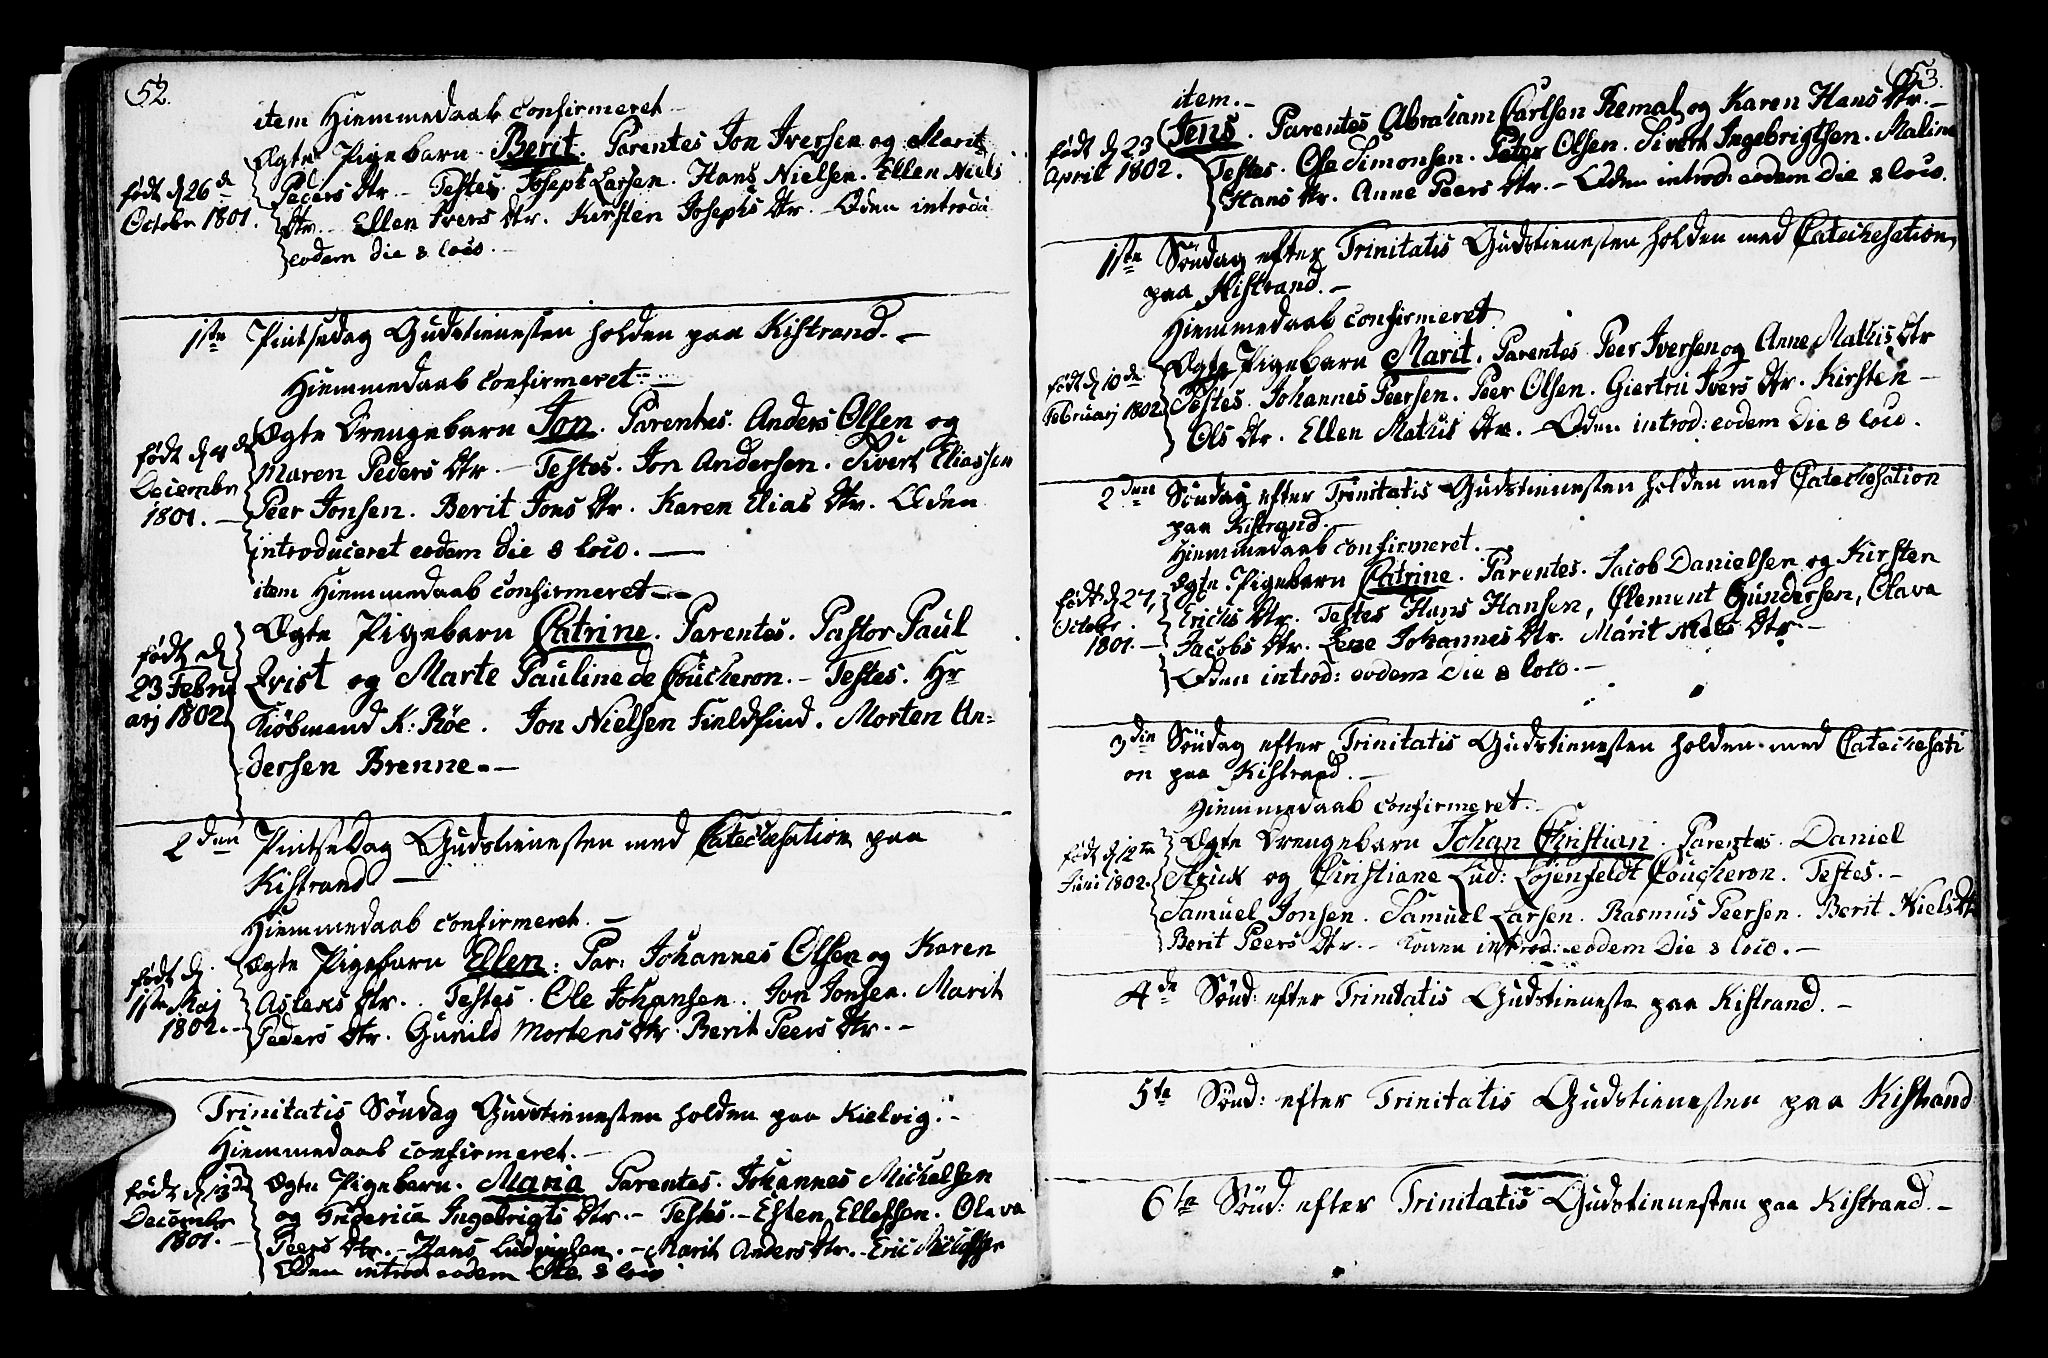 52.
item Hiemmedaab confirmeret
Ægte Pigebarn Berit. Parentes Jon Iversen og Marit
født d 26de
Peders Dtr. – Testes. Joseph Larsen. Hans Nielsen. Ellen Niels
October 1801.
Dtr. – Ellen Ivers Dtr. Kirsten Josephs Dtr. – introdu
eodem die & loco. –
1ste Pintsedag Gudstienesten holden paa Kistrand. –
Hiemmedaab confirmeret. –
Ægte Drengebarn Jon. Parentes. Anders Olsen og
født d
Maren Peders Dtr. – Testes. Jon Andersen. Sivert Eliassen
Decembr
Peer Jonsen. Berit Jons Dtr. Karen Elias Dtr.
1801. –
introduceret eodem die & loco. –
item Hiemmedaab confirmeret –
Ægte Pigebarn Catrine. Parentes. Pastor Paul
født d
Qvist og Marte Pauline de Coucheron. – Testes. Hr
23 Febru
Kiöbmand K: Röe. Jon Nielsen Fieldfind. Morten An=
arj 1802
dersen Brenne. –
2den Pintsedag Gudstienesten med Catechesation paa
Kistrand –
Hiemmedaab confirmeret. –
Ægte Pigebarn Ellen: Par: Johannes Olsen og Karen
født d.
Aslaks Dtr. Testes. Ole Johansen. Jon Jonsen. Marit
1ste Maj
1802. –
Peders Dtr. Gunild Mortens Dtr. Berit Peers Dtr. –
Trinitatis Söndag Gudstienesten holden paa Kielvig. –
Hiemmedaab confirmeret. –
født d 13de
Ægte Pigebarn. Maria Parentes. Johannes Michelsen
Decembr
og Friderica Ingebrigts Dtr. – Testes. – Esten Ellefsen. Olava
1801. –
Peers Dtr. – Hans Ludvigsen. – Marit Anders Dtr. – Eric
introd eodem die & loco
53.
item. –
Jens. Parentes Abraham Carlsen Remal og Karen Hans Dtr. –
født d 23
Testes. Ole Simonsen. Peter Olsen. Sivert Ingebrigtsen. Maline
April 1802.
Hans Dtr. Anne Peers Dtr. – introd: eodem die & loco.
1ste Söndag efter Trinitatis Gudstienesten holden med Catechesation
paa Kistrand. –
Hiemmedaab confirmeret.
Ægte Pigebarn Marit. Parentes Peer Iversen og Anne Mathis Dtr
født d 10de
Testes. Johannes Peersen. Peer Olsen. Giertru Ivers Dtr. Kirsten –
Februarj 1802
Ols Dtr. Ellen Mathis Dtr. – introd: eodem die & loco.
2den Söndag efter Trinitatis Gudstienesten holden med Catechesation
paa Kistrand. –
Hiemmedaab confirmeret. –
Ægte Pigebarn Catrine. Parentes. Jacob Danielsen og Kirsten
født d 27,
Erichs Dtr. Testes Hans Hansen, Clement Gundersen, Olava
Octobr.
1801. –
Jacobs Dtr. Lene Johannes Dtr. Marit Niels Dtr. –
introd: eodem die & loco. –
3die Söndag efter Trinitatis Gudstienesten holden med Catechesati
on paa Kistrand. –
Hiemmedaab confirmeret. –
født d 12te
Ægte Drengebarn Johan Christian. Parentes. Daniel
Juni 1802.
og Christiane Lud: Löjenfeldt Coucheron. Testes. –
Samuel Jonsen. Samuel Larsen. Rasmus Peersen. Berit Niels Dtr
Berit Peers Dtr. – Konen introd: eodem die & loco. –
4de Sönd: efter Trinitatis Gudstieneste paa Kistrand. –
5te Sönd: efter Trinitatis Gudstienesten paa Kistrand
6te Sönd: efter Trinitatis Gudstienesten paa Kistrand. –